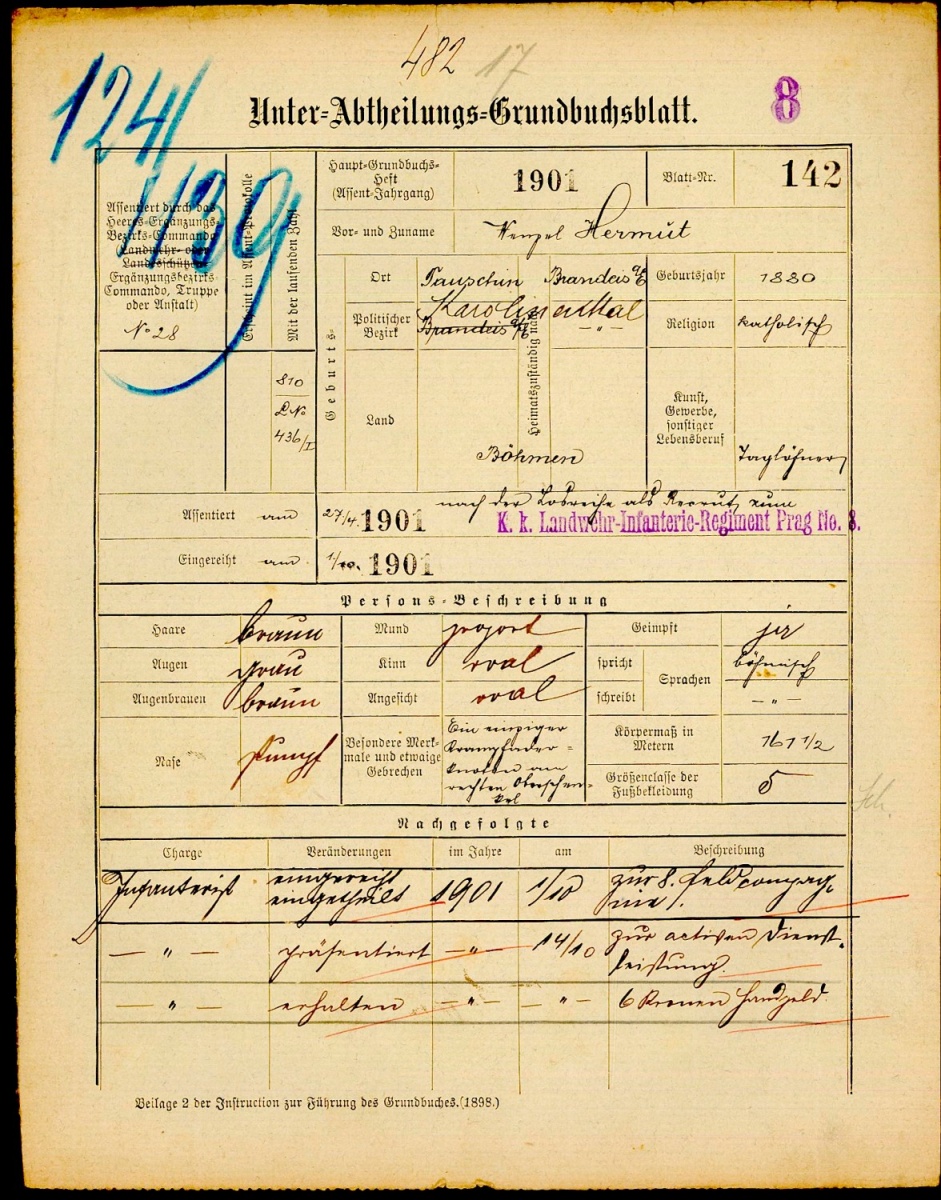 482 17
124/
139
8
Unter-Abtheilungs-Grundbuchsblatt.
Assentiert durch das
Heeres-Ergänzungs-
Bezirks-Commando
Landwehr- oder
Landesschützen-
Ergänzungsbezirks-
Commando, Truppe
oder Anstalt)
No 28
Erscheint im Assent-Protokolle
Mit der laufenden Zahl
810
L No
436/I
Haupt-Grundbuchs-
Heft
(Assent-Jahrgang)
1901
Blatt-Nr.
142
Vor- und Zuname
Wenzel Hermut
Geburts-
Ort
Tauschin
Brandeis a/E
Geburtsjahr
1880
Politischer
Bezirk
Karolinenthal
Brandeis a/E
— " —
Heimatszuständig nach
Religion
katholisch
Land
Böhmen
Kunst,
Gewerbe,
sonstiger
Lebensberuf
Taglöhner
Assentiert am
27/4. 1901
nach der Losreihe als Recrut zum
K. k. Landwehr-Infanterie-Regiment Prag No. 8.
Eingereiht am
1/10. 1901
Persons-Beschreibung
Haare braun
Mund proport
Geimpft ja
Augen grau
Kinn oval
spricht
Sprachen
böhmisch
Augenbrauen braun
Angesicht oval
schreibt
— " —
Nase stumpf
Besondere Merk-
male und etwaige
Gebrechen
Ein einziger
Krampfader-
knoten am
rechten Oberschen-
kel
Körpermaß in
Metern
161 1/2
Größenclasse der
Fußbekleidung
5
Nachgefolgte
Charge Veränderungen im Jahre am Beschreibung
Infanterist eingereiht
eingetheilt 1901 1/10 zur 8. Feldcompag-
nie /.
— " — präsentiert — " — 14/10 zur activen Dienst-
leistung.
— " — erhalten — " — — " — 6 Kronen Handgeld.
Beilage 2 der Instruction zur Führung des Grundbuches. (1898.)